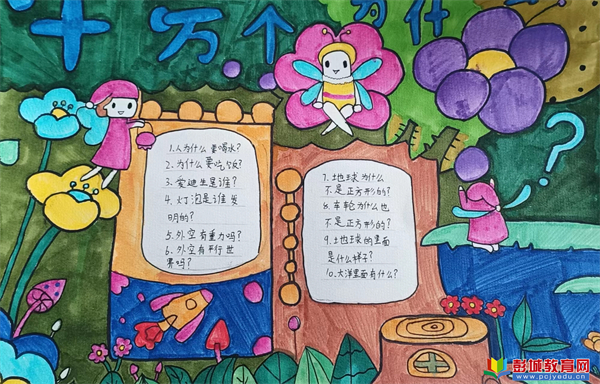 十万个为什
1.人为什么要喝水?
2.为什么要吃饭?
3.爱迪生是谁?
4.灯泡是谁发
明的?
5.外空有重力吗?
6.外空有平行世
界吗?
7.地球为什么
不是正方形的?
8.车轮为什么也
不是正方形的?
9.地球的里面
是什么样子?
10.大洋里面有什么?
?
彭城教育网
www.pcjyedu.cn